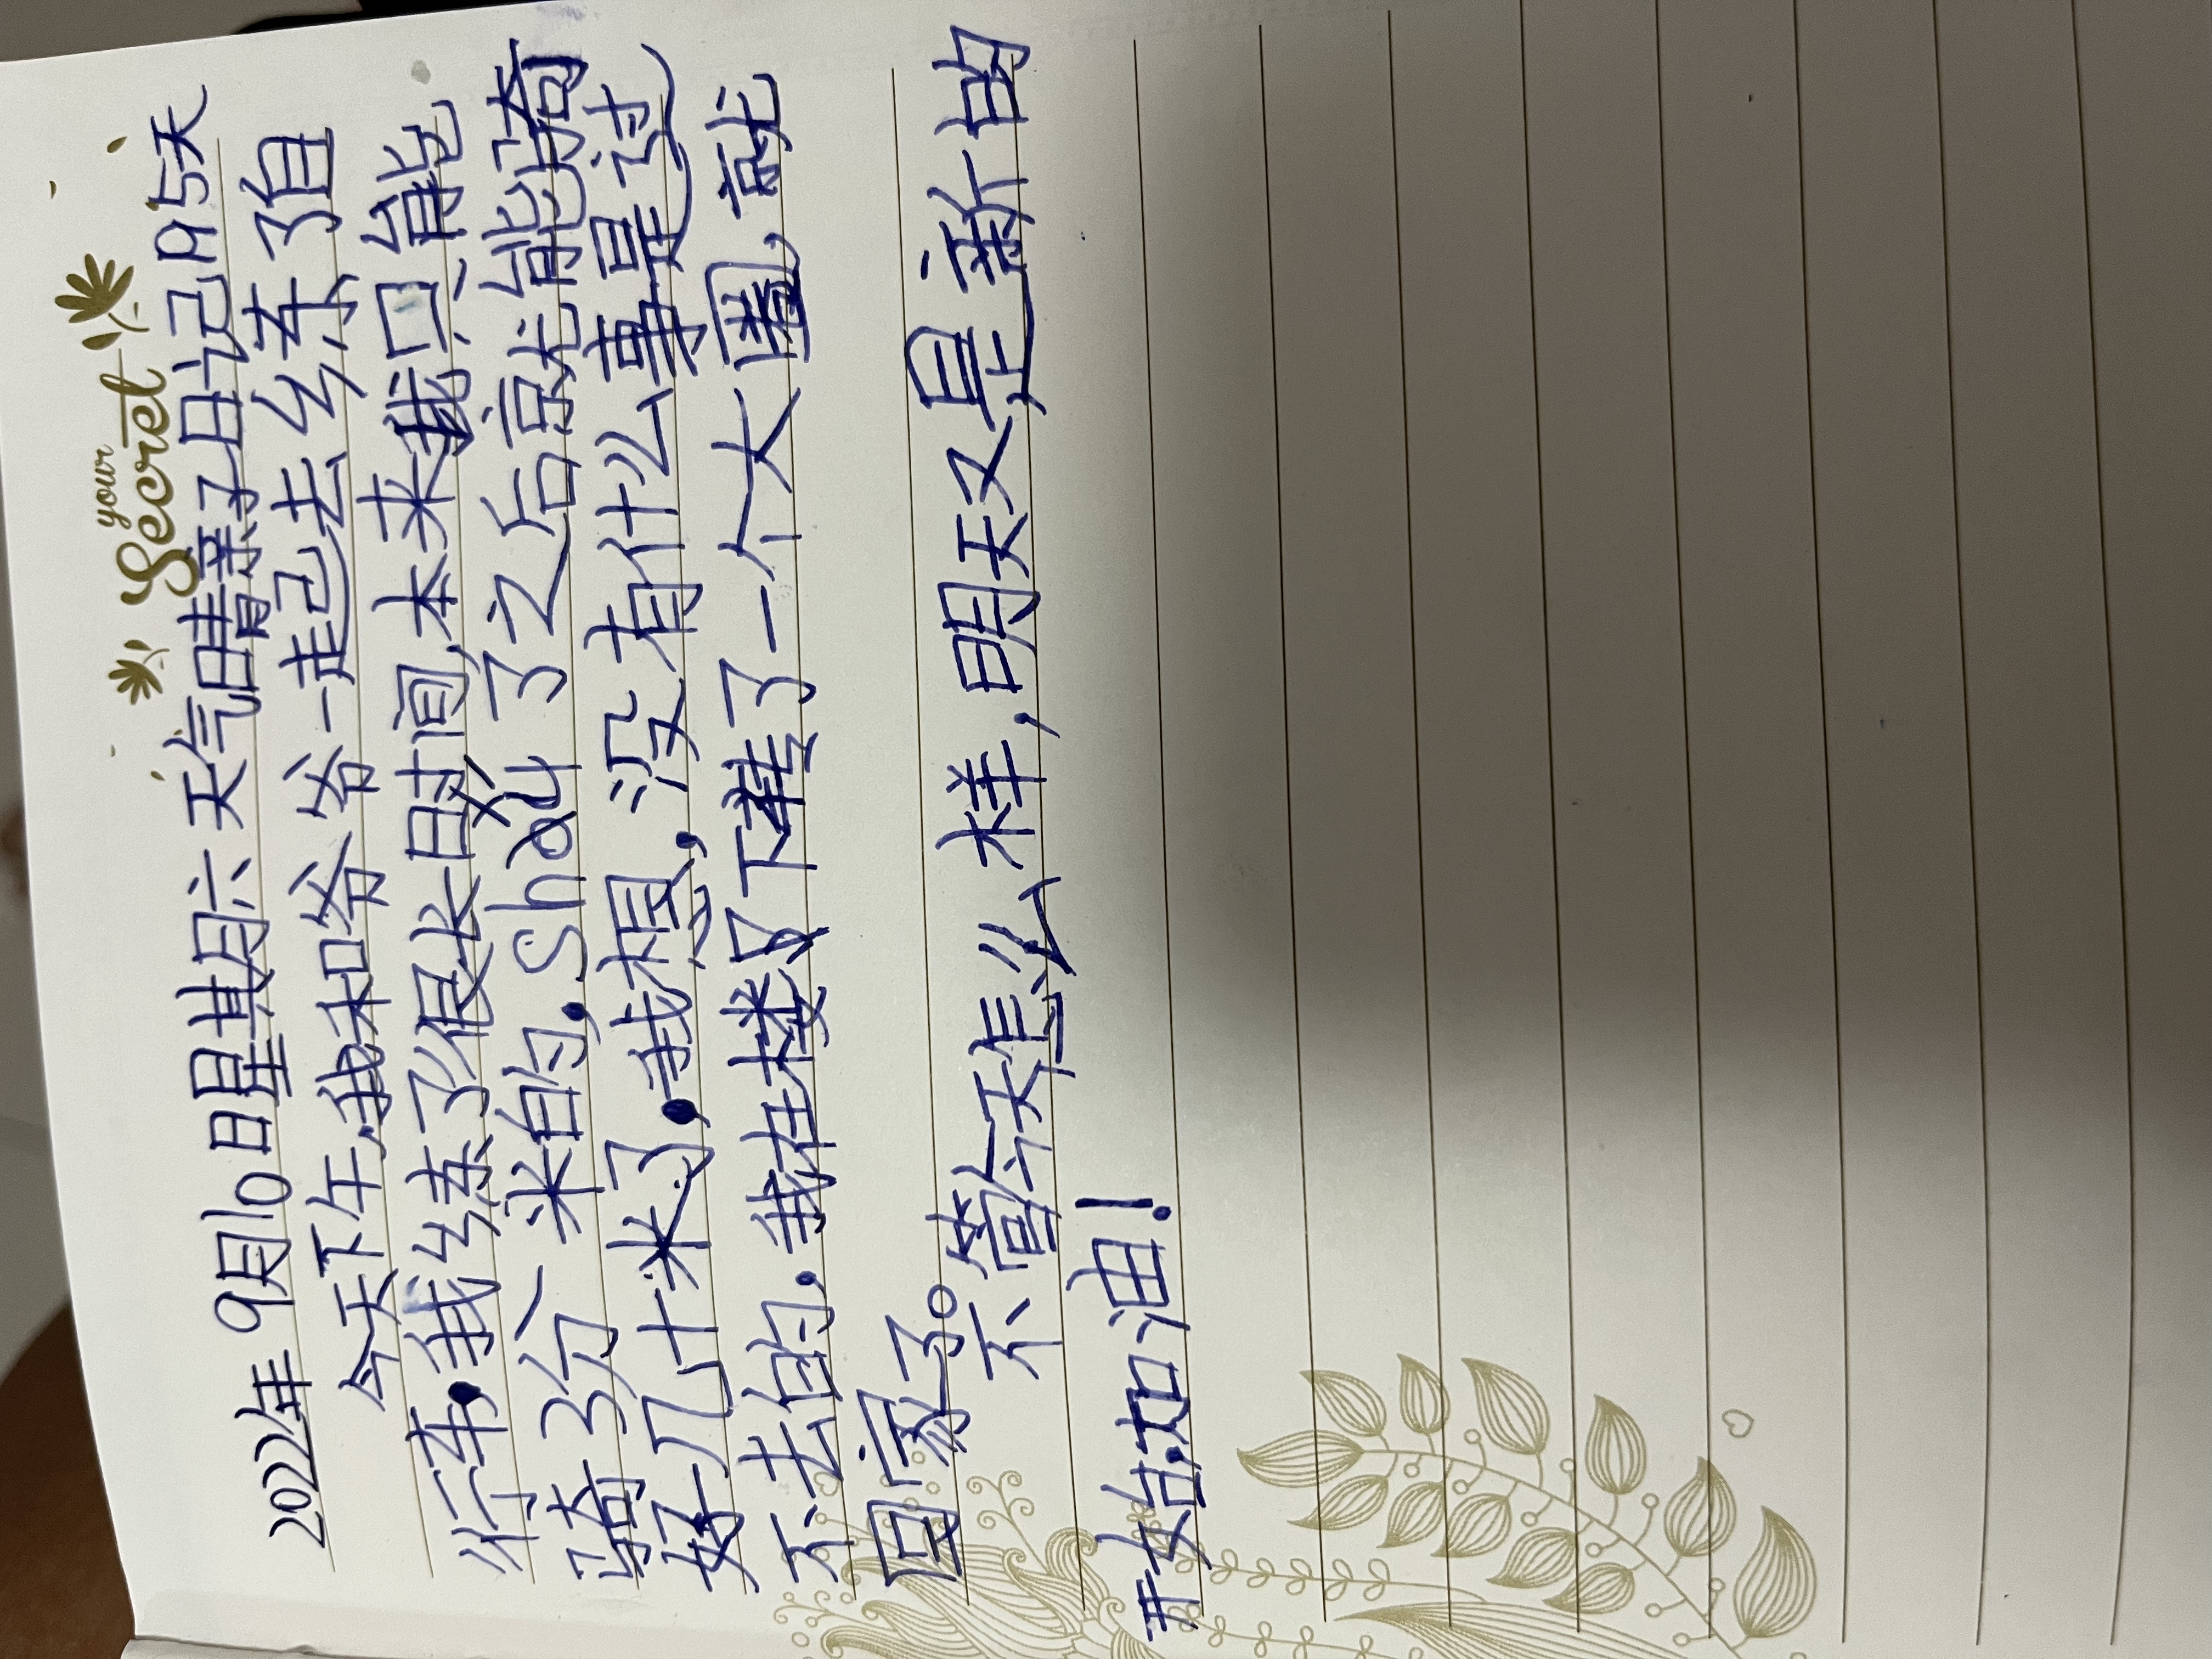 your
Secret
2022年 9月10日星期六 天气晴亲子日记195天
今天下午,我和爷爷一走己去幺练了自
行车,我幺练了很长时间,本来我只能
骑3分 米的,Shɑu 了之后京尤能骑
好几十米了,我想,没有什么事是过
不去的,我在楼下下骑了一个大圈,就
回家了。
不管今天怎么样,明天又是新的
开始,加油!